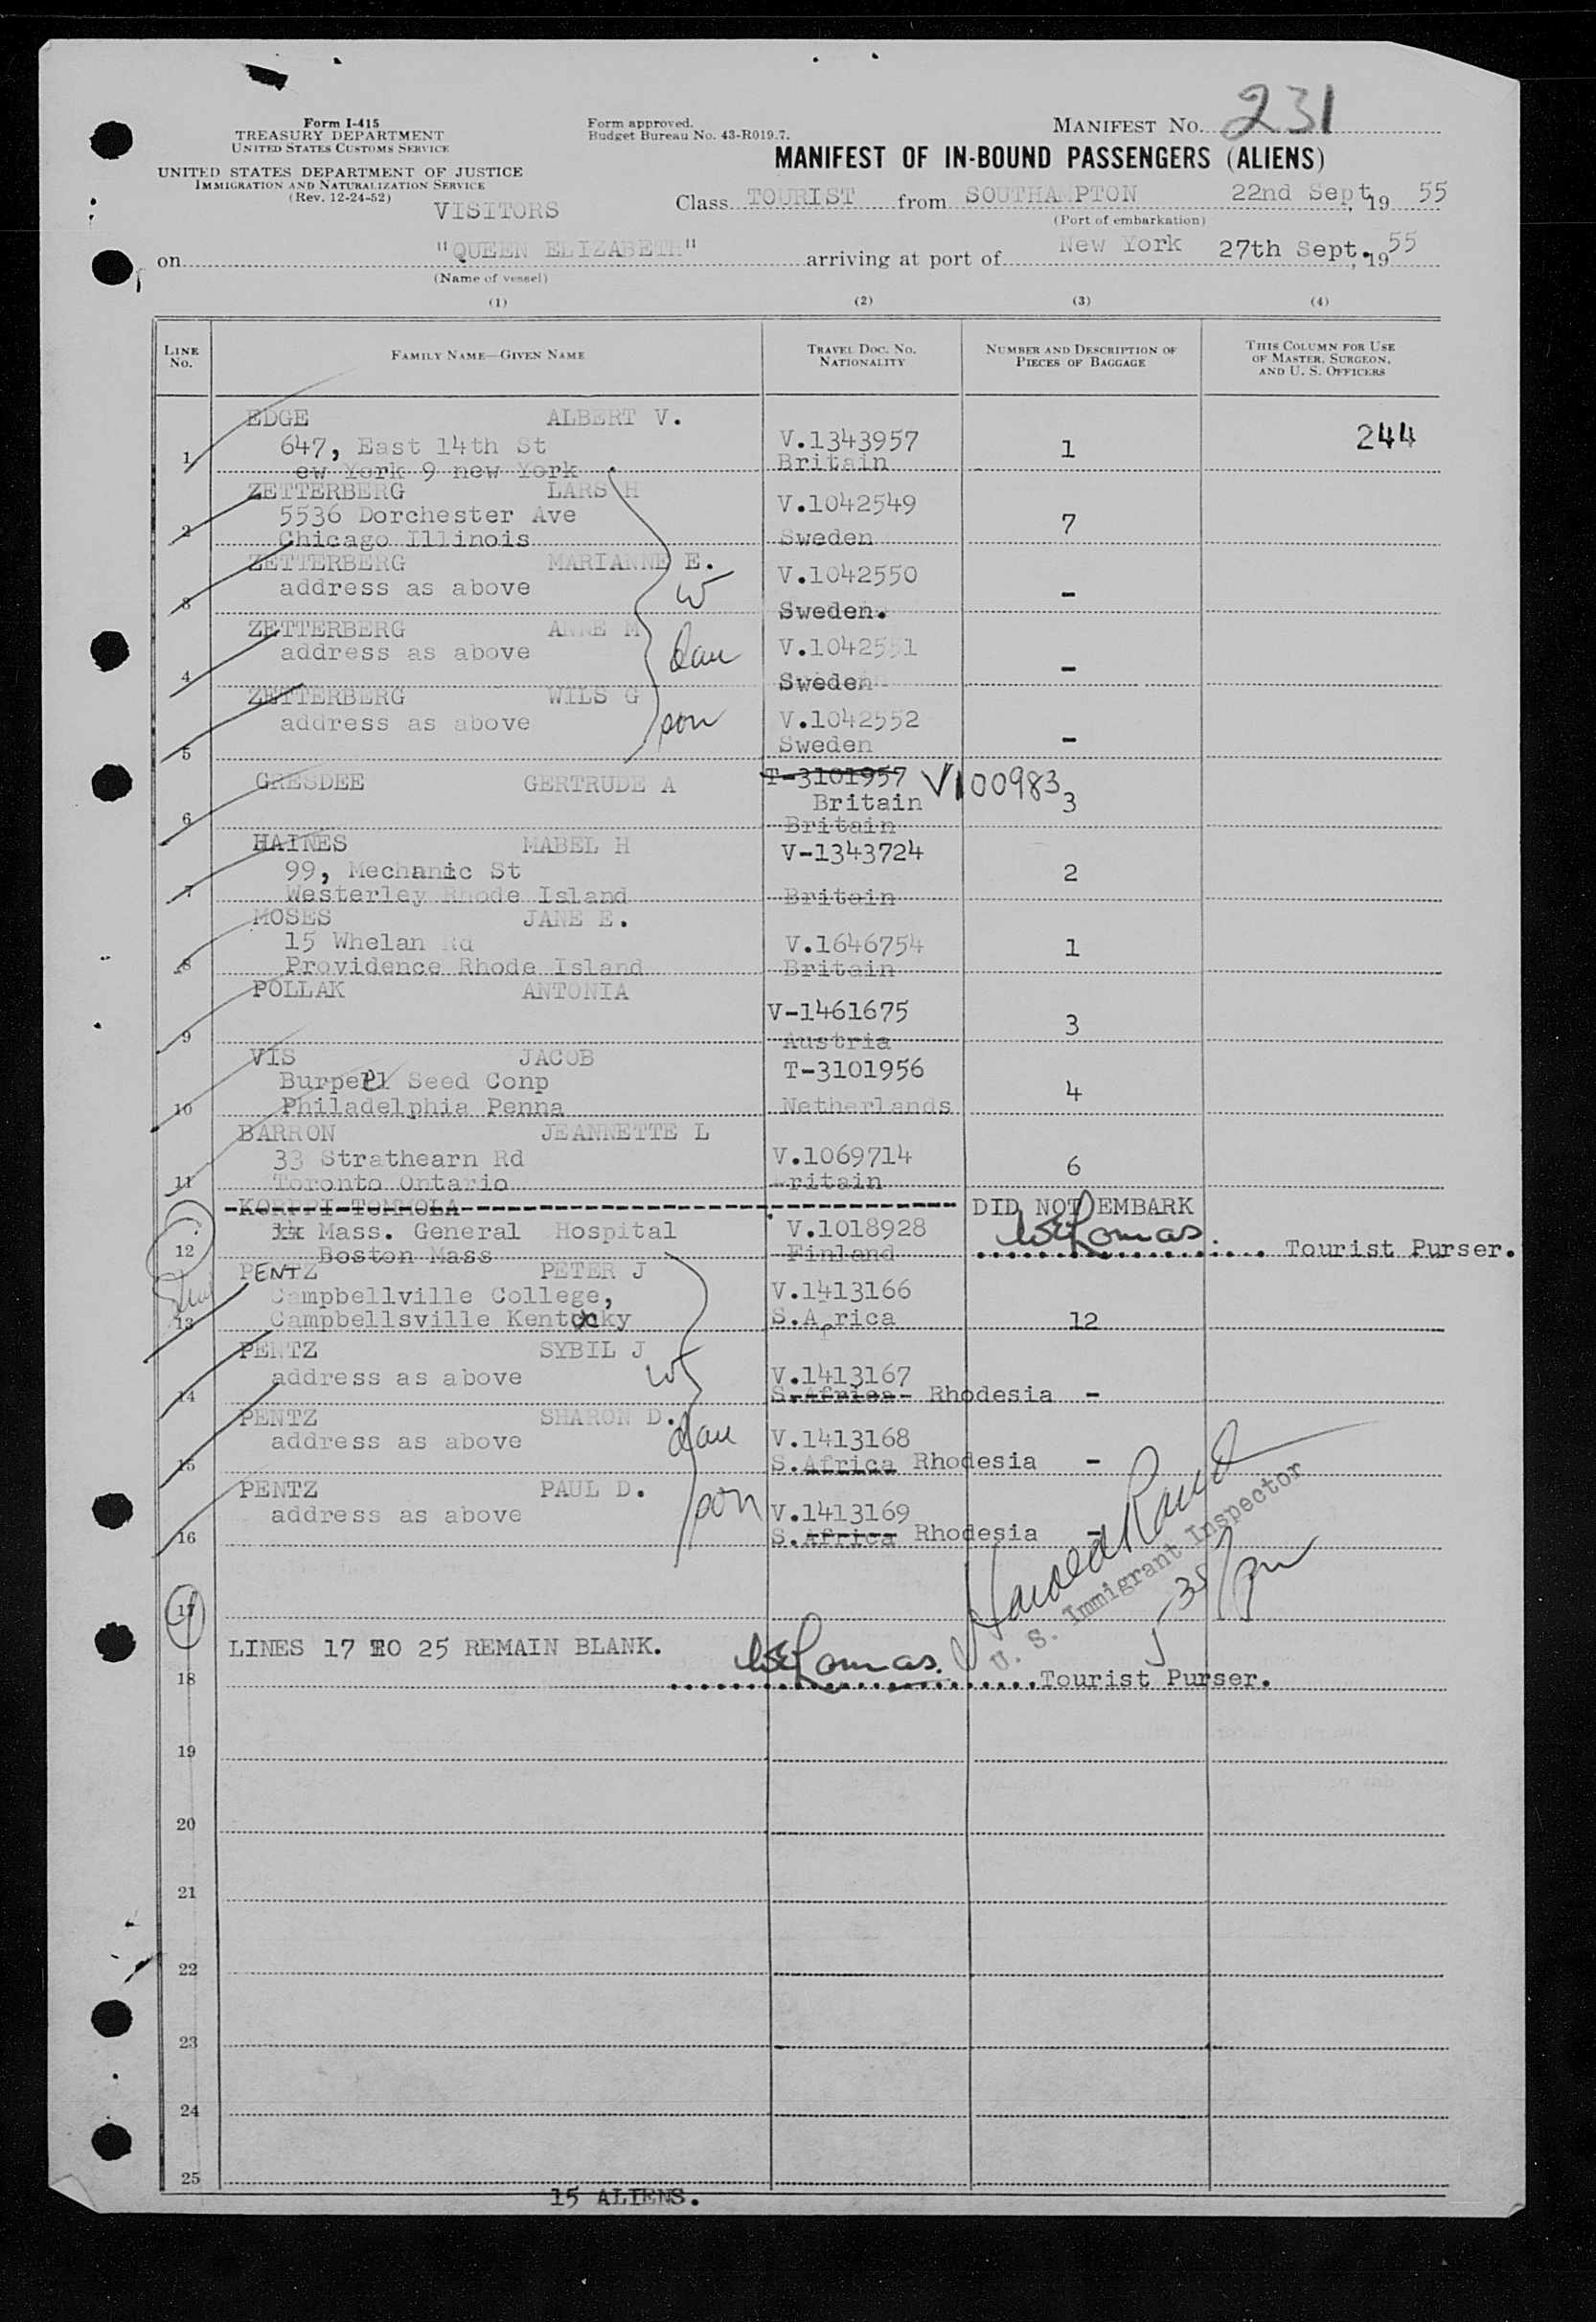 Form I-415
TREASURY DEPARTMENT
UNITED STATES CUSTOMS SERVICE
UNITED STATES DEPARTMENT OF JUSTICE
IMMIGRATION AND NATURALIZATION SERVICE
(Rev. 12-24-52)
VISITORS
Form approved.
Budget Bureau No. 43-R019.7.
MANIFEST NO. 231
MANIFEST OF IN-BOUND PASSENGERS (ALIENS)
Class TOURIST from SOUTHAMPTON 22nd Sept, 19 55
(Port of embarkation)
on "QUEEN ELIZABETH" arriving at port of New York 27th Sept., 19 55
(Name of vessel)
(1) (2) (3) (4)
LINE NO. FAMILY NAME—GIVEN NAME TRAVEL DOC. NO. NATIONALITY NUMBER AND DESCRIPTION OF PIECES OF BAGGAGE THIS COLUMN FOR USE OF MASTER, SURGEON, AND U. S. OFFICERS
EDGE ALBERT V. 244
1 647, East 14th St V.1343957 1
ew York 9 new York Britain
ZETTERBERG LARS H
2 5536 Dorchester Ave V.1042549 7
Chicago Illinois Sweden
ZETTERBERG MARIANNE E.
3 address as above W V.1042550 -
Sweden.
ZETTERBERG ANNE M
4 address as above dau V.1042551 -
Sweden
ZETTERBERG WILS G
5 address as above son V.1042552 -
Sweden
GRESDEE GERTRUDE A T-3101957 V100983
6 Britain 3
Britain
HAINES MABEL H V-1343724
7 99, Mechanic St 2
Westerley Rhode Island Britain
MOSES JANE E.
8 15 Whelan Rd V.1646754 1
Providence Rhode Island Britain
POLLAK ANTONIA
9 V-1461675 3
Austria
VIS JACOB T-3101956
10 Burpell Seed Conp 4
Philadelphia Penna Netherlands
BARRON JEANNETTE L
11 33 Strathearn Rd V.1069714 6
Toronto Ontario ritain
KORPPI-TOMMOLA DID NOT EMBARK
12 Mass. General Hospital V.1018928
Boston Mass Finland Tourist Purser.
PENTZ PETER J
13 Campbellville College, V.1413166
Campbellsville Kentucky S.Africa 12
PENTZ SYBIL J
14 address as above W V.1413167
S.Africa- Rhodesia -
PENTZ SHARON D.
15 address as above dau V.1413168
S.Africa Rhodesia -
PENTZ PAUL D.
16 address as above son V.1413169
S.Africa Rhodesia -
U. S. Immigrant Inspector
17
LINES 17 TO 25 REMAIN BLANK.
18 Tourist Purser.
19
20
21
22
23
24
25
15 ALIENS.